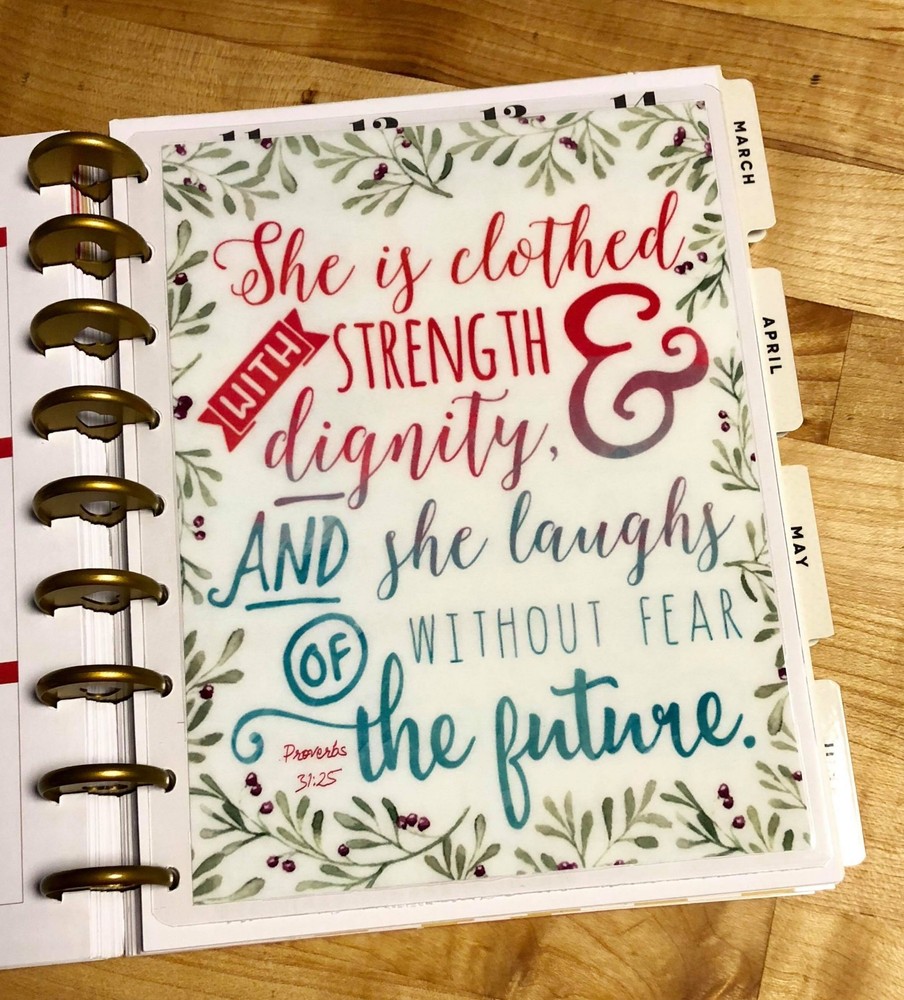 11 12 13 14
She is clothed
WITH STRENGTH &
dignity,
AND she laughs
OF WITHOUT FEAR
the future.
Proverbs
31:25
MARCH
APRIL
MAY